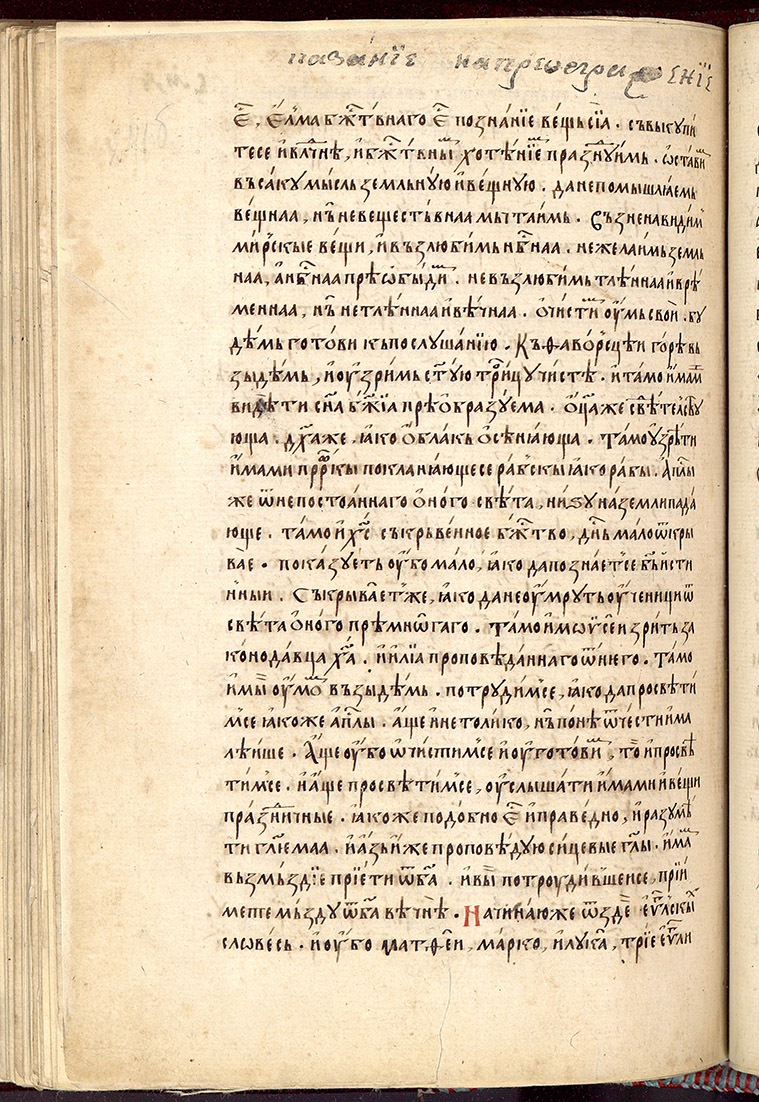 пазанїе напреѡбра҄женїїе
є҆҃. Е҆лма бж҃т҇внаго є҆҃ познанїе вещьсїа. съвыкупи
тесе и҆влⷱ҇нѣ, и҆бж҃т҇вныⷨ хотѣнїеⷨ празⷣнуимь. ѡ҆стави
въсаку мысль земльную и҆вещную. да непомышлꙗемь
вещнаа, нъ҆ невещестьвнаа мы таимь. Съзненавидим
мирⷭ҇кые вещи, и҆възлюбимь нбⷭ҇наа. нежелаимь земль
наа, а҆нбⷭ҇наа прѣѡбыдиⷨ. невъзлюбимь тлѣннаа и҆врѣ
меннаа, нъ҆ нетлѣннаа и҆вѣчнаа. ѻ҆чистиⷨ ѹ҆мь свои. бу
демь готови къ послушанїю. Къ ѳаворⷭ҇цѣи горѣ въ
зыдемь, и҆ѹ҆зримь ст҃ую трⷪ҇ицу чистѣ. и҆тамо и҆мамⷨ
видѣти сн҃а бж҃їа прѣѻбразуема. ѻ҆ц҃аже свѣтелⷭ҇ву
юща. дх҃аже, ꙗ҆ко ѻ҆блакъ ѻ҆сѣнꙗюща. тамо ѹ҆зрѣти
и҆мами прⷪ҇рⷪ҇кы покланꙗющесе рабⷭ҇кы ꙗ҆ко рабы. а҆пⷭ҇лы
же ѿ непостоаннаго ѻ҆ного свѣта, ниꙁу на земли пада
юще. тамо и҆хⷭ҇ съкрьвенное бж҃тво, дн҃ь мало ѿкры
вае. показуеть ѹ҆бо мало, ꙗ҆ко да познаетⷭ҇е бг҃ь и҆сти
нныи. Съкрываетⷤе, ꙗ҆ко да не ѹ҆мруть ѹ҆ченици ѿ
свѣта ѻ҆ного прѣмнѡгаго. Тамо и҆мѡѵсеи зрить за
конодавца хⷭ҇а. и҆и҆лїа проповѣданнаго ѿ него. тамо
и҆мы ѹ҆моⷨ възыдемь. потрудимⷭ҇е, ꙗ҆ко да просвѣти
мⷭ҇е ꙗ҆коже а҆пⷭ҇лы. а҆ще и҆не толико, нъ҆ понѣ ѿчести и҆ма
лѣише. А҆ще ѹ҆бо ѡ҆чистимⷭ҇е и҆ѹ҆готовиⷨ, то и҆просвѣ
тимⷭ҇е. и҆а҆ще просвѣтимⷭ҇е, ѹ҆слышати и҆мами и҆вещи
празⷣничные. ꙗ҆коже подобно є҆҃ и҆праведно, и҆разумѣ
ти гл҃емаа. и҆а҆зь и҆же проповѣдую сицевые гл҃ы. и҆маⷨ
въ змьздїе прїети ѿ бг҃а. и҆вы потроудившеисе, прїи
мете мьзду ѿ бг҃а вѣчнѣ. Начинаюже ѿ зде еѵⷢ҇лскыⷯ
словесь. и҆ѹ҆бо матѳеи, марко, и҆лука, трїе еѵⷢ҇ли